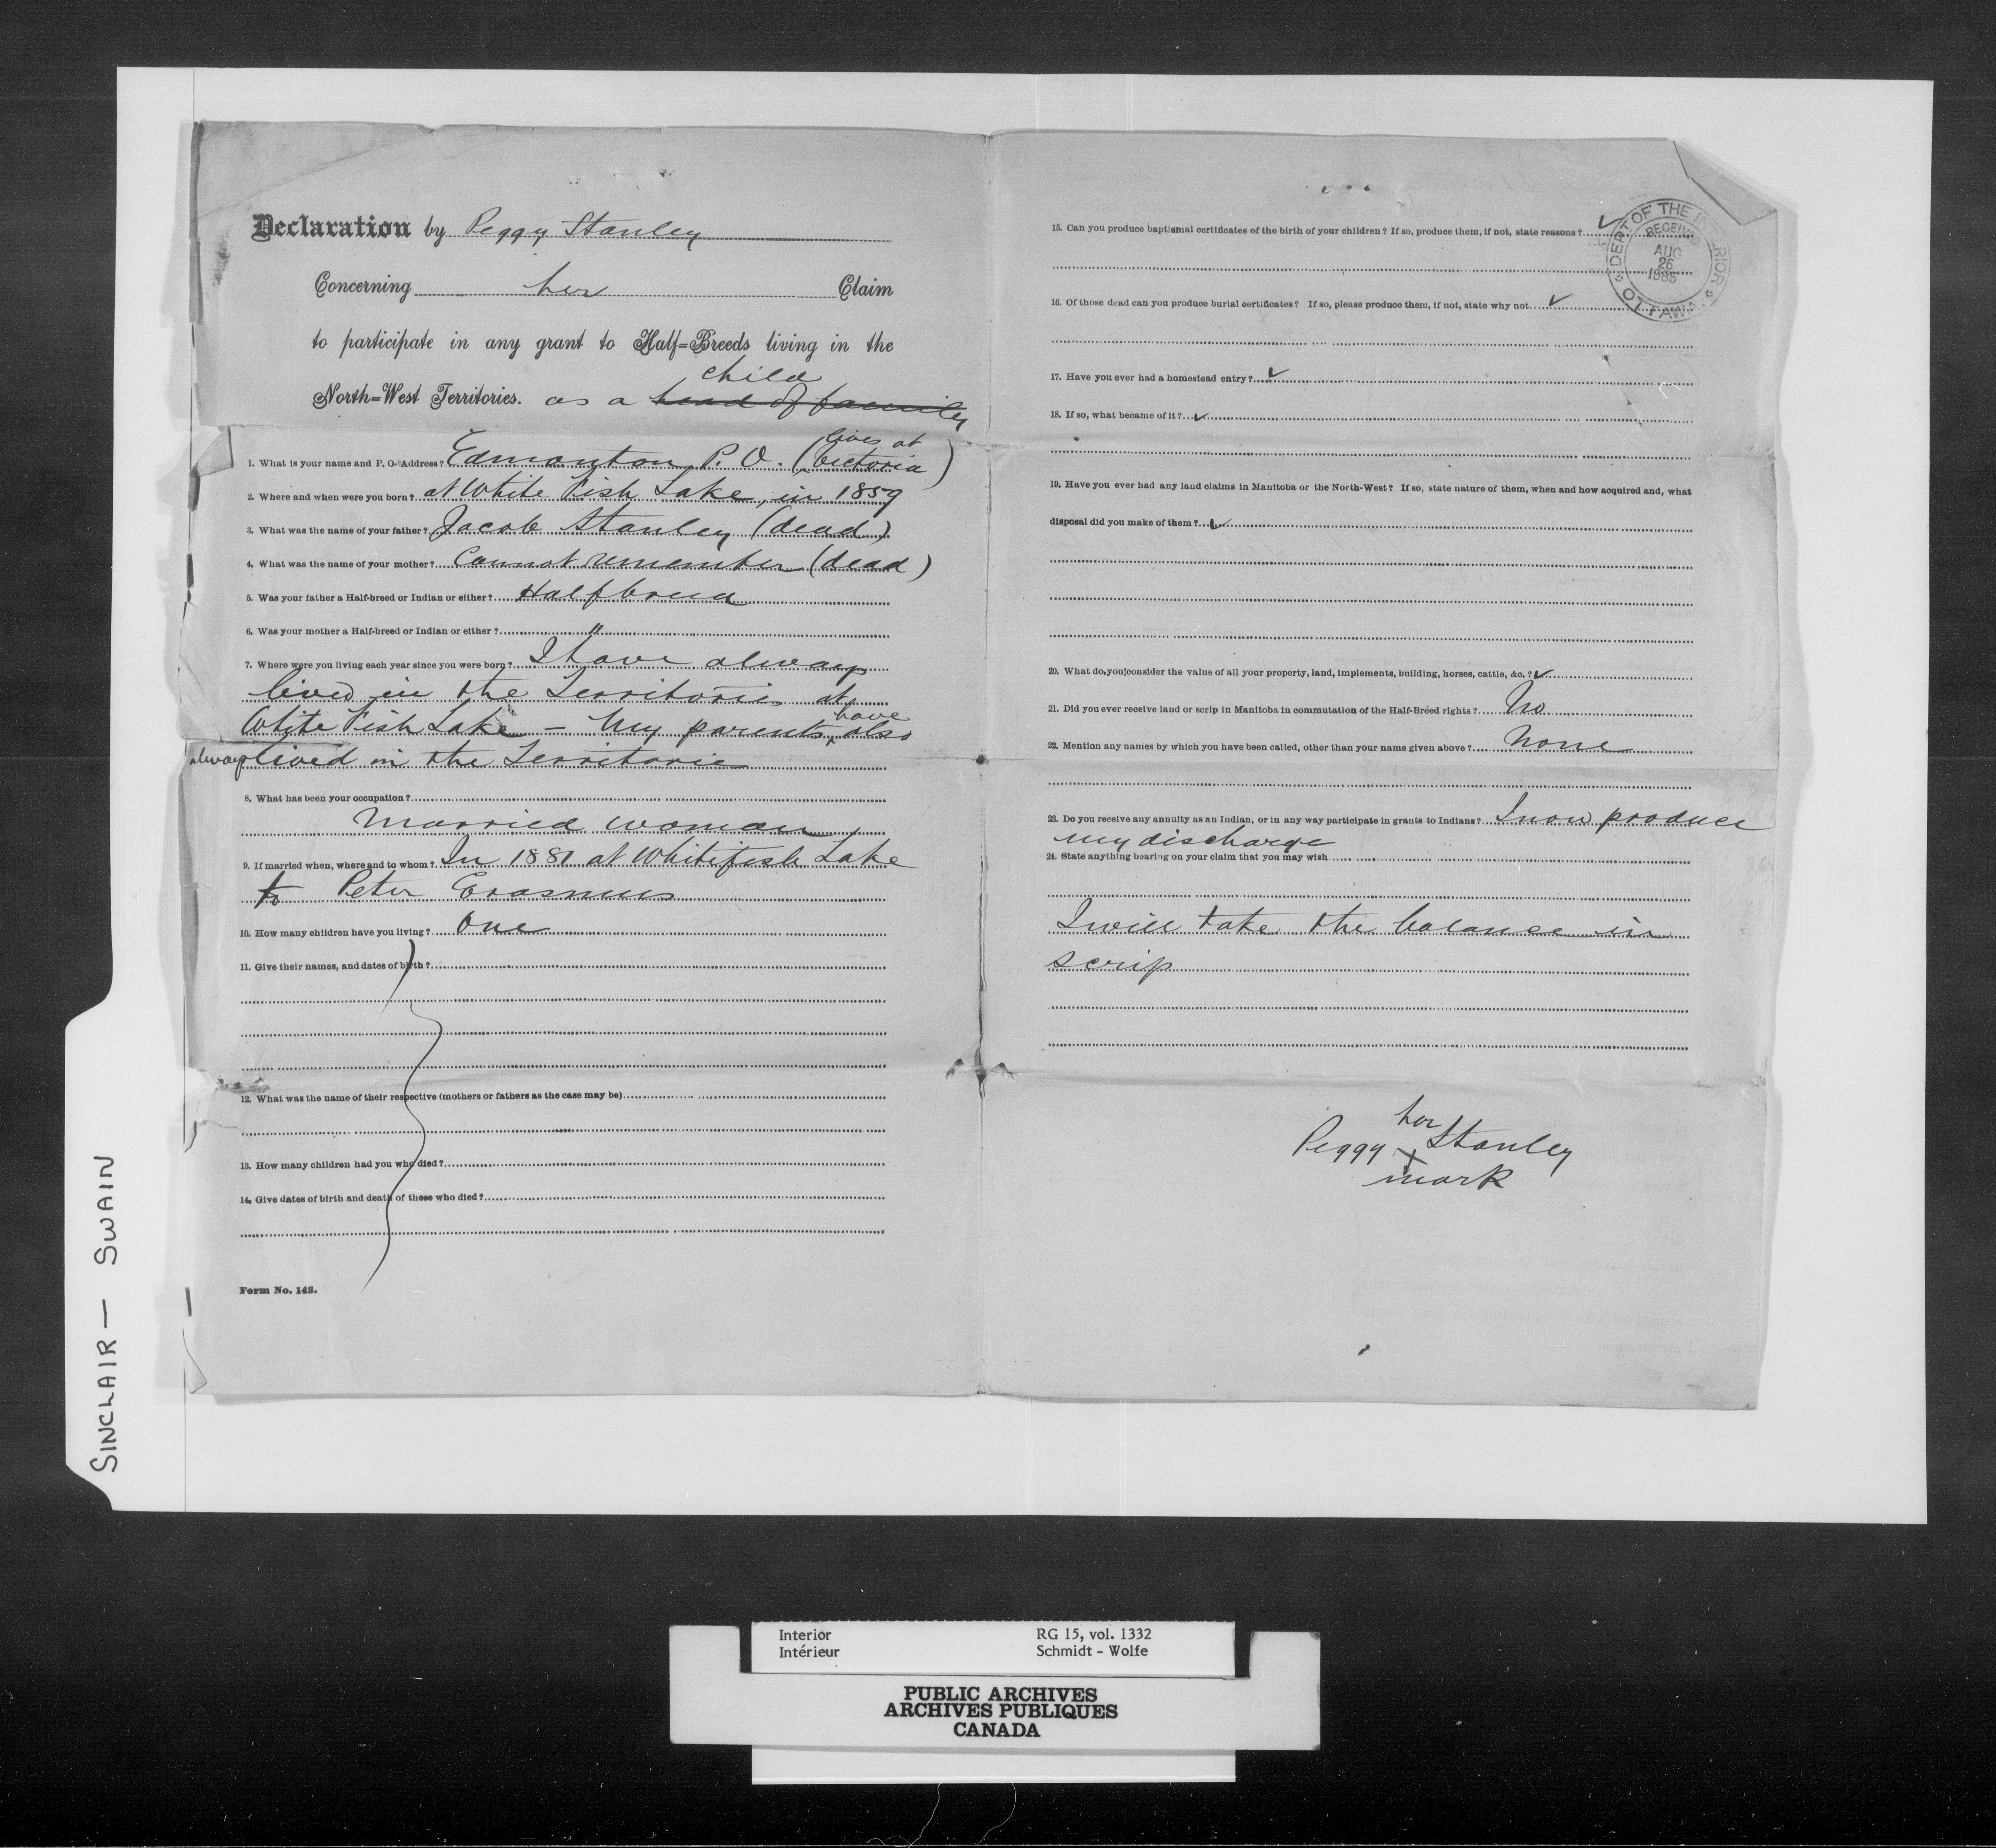 Declaration by Peggy Stanley
Concerning her Claim
to participate in any grant to Half=Breeds living in the
child
North=West Territories. as a head of family
lives at
1. What is your name and P. O. Address? Edmonton P. O. (Victoria)
2. Where and when were you born? at White Fish Lake, in 1859
3. What was the name of your father? Jacob Stanley (dead)
4. What was the name of your mother? Cannot remember (dead)
5. Was your father a Half-breed or Indian or either? Halfbreed
6. Was your mother a Half-breed or Indian or either? "
7. Where were you living each year since you were born? I have always
lived in the Territories at
have
White Fish Lake - My parents also
always lived in the Territories
8. What has been your occupation?
Married woman
9. If married when, where and to whom? In 1881 at Whitefish Lake
to Peter Erasmus
10. How many children have you living? One
11. Give their names, and dates of birth?
12. What was the name of their respective (mothers or fathers as the case may be)
13. How many children had you who died?
14. Give dates of birth and death of those who died?
Form No. 143.
15. Can you produce baptismal certificates of the birth of your children? If so, produce them, if not, state reasons? ✓
16. Of those dead can you produce burial certificates? If so, please produce them, if not, state why not ✓
17. Have you ever had a homestead entry? ✓
18. If so, what became of it? ✓
19. Have you ever had any land claims in Manitoba or the North-West? If so, state nature of them, when and how acquired and, what
disposal did you make of them? ✓
20. What do you consider the value of all your property, land, implements, building, horses, cattle, &c. ? ✓
21. Did you ever receive land or scrip in Manitoba in commutation of the Half-Breed rights? No
22. Mention any names by which you have been called, other than your name given above? None
23. Do you receive any annuity as an Indian, or in any way participate in grants to Indians? I now produce
my discharge
24. State anything bearing on your claim that you may wish
I will take the balance in
scrip
her
Peggy X Stanley
mark
DEPT OF THE INTERIOR
RECEIVED
AUG
26
1885
OTTAWA
SINCLAIR — SWAIN
Interior RG 15, vol. 1332
Intérieur Schmidt - Wolfe
PUBLIC ARCHIVES
ARCHIVES PUBLIQUES
CANADA